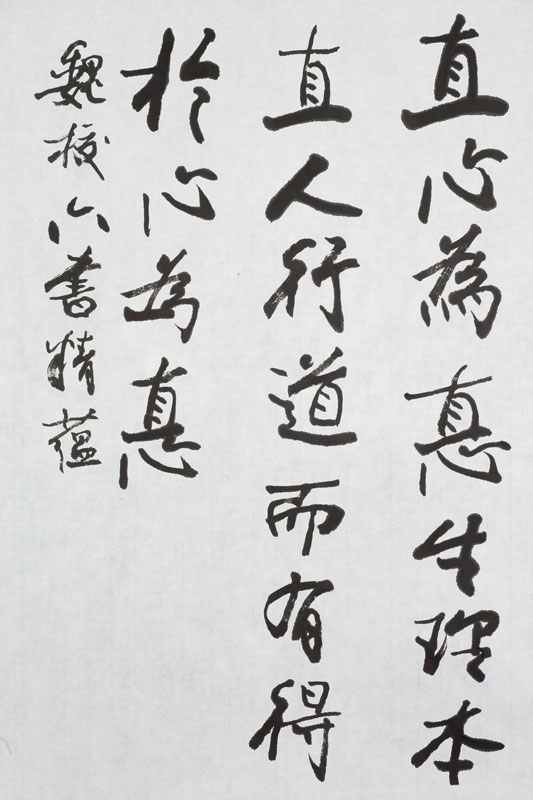 直心為悳生理本
直人行道而有得
於心為悳
魏校六書精蘊